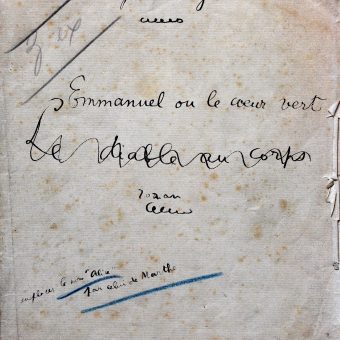 Emmanuel ou le cœur vert
Le diable au corps
roman
remplacer le nom d'Alice
par celui de Marthe